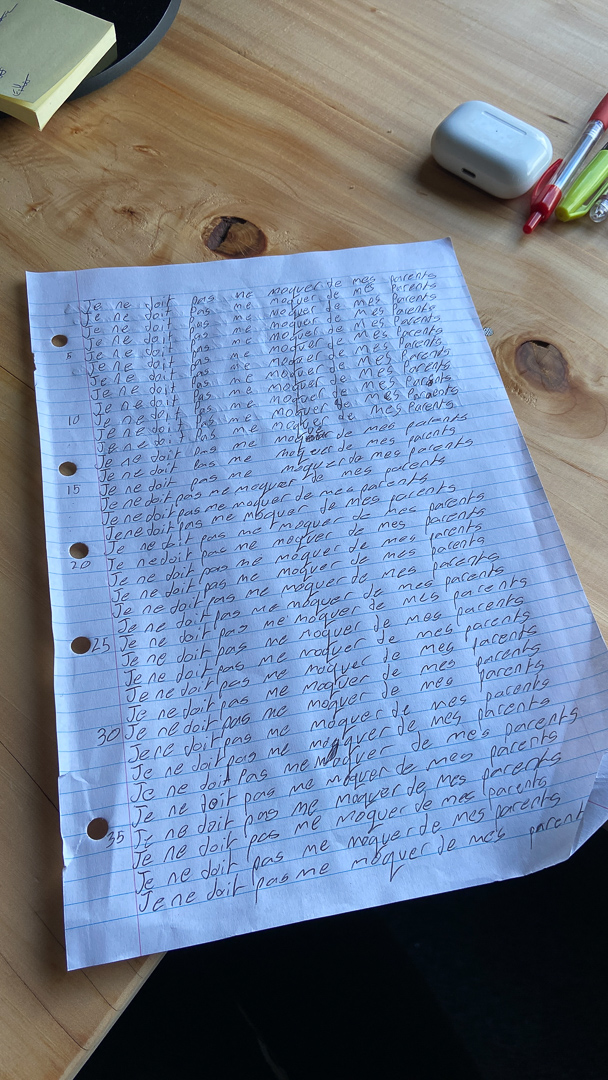 Je ne doit pas me moquer de mes parents
Je ne doit pas me moquer de mes parents
Je ne doit pas me moquer de mes parents
Je ne doit pas me moquer de mes parents
5 Je ne doit pas me moquer de mes parents
Je ne doit pas me moquer de mes parents
Je ne doit pas me moquer de mes parents
Je ne doit pas me moquer de mes parents
Je ne doit pas me moquer de mes parents
10 Je ne doit pas me moquer de mes parents
Je ne doit pas me moquer de mes parents
Je ne doit pas me moquer de mes parents
Je ne doit pas me moquer de mes parents
Je ne doit pas me moquer de mes parents
15 Je ne doit pas me moquer de mes parents
Je ne doit pas me moquer de mes parents
Je ne doit pas me moquer de mes parents
Je ne doit pas me moquer de mes parents
Je ne doit pas me moquer de mes parents
20 Je ne doit pas me moquer de mes parents
Je ne doit pas me moquer de mes parents
Je ne doit pas me moquer de mes parents
Je ne doit pas me moquer de mes parents
Je ne doit pas me moquer de mes parents
25 Je ne doit pas me moquer de mes parents
Je ne doit pas me moquer de mes parents
Je ne doit pas me moquer de mes parents
Je ne doit pas me moquer de mes parents
Je ne doit pas me moquer de mes parents
30 Je ne doit pas me moquer de mes parents
Je ne doit pas me moquer de mes parents
Je ne doit pas me moquer de mes parents
Je ne doit pas me moquer de mes parents
Je ne doit pas me moquer de mes parents
35 Je ne doit pas me moquer de mes parents
Je ne doit pas me moquer de mes parents
Je ne doit pas me moquer de mes parents
Je ne doit pas me moquer de mes parent